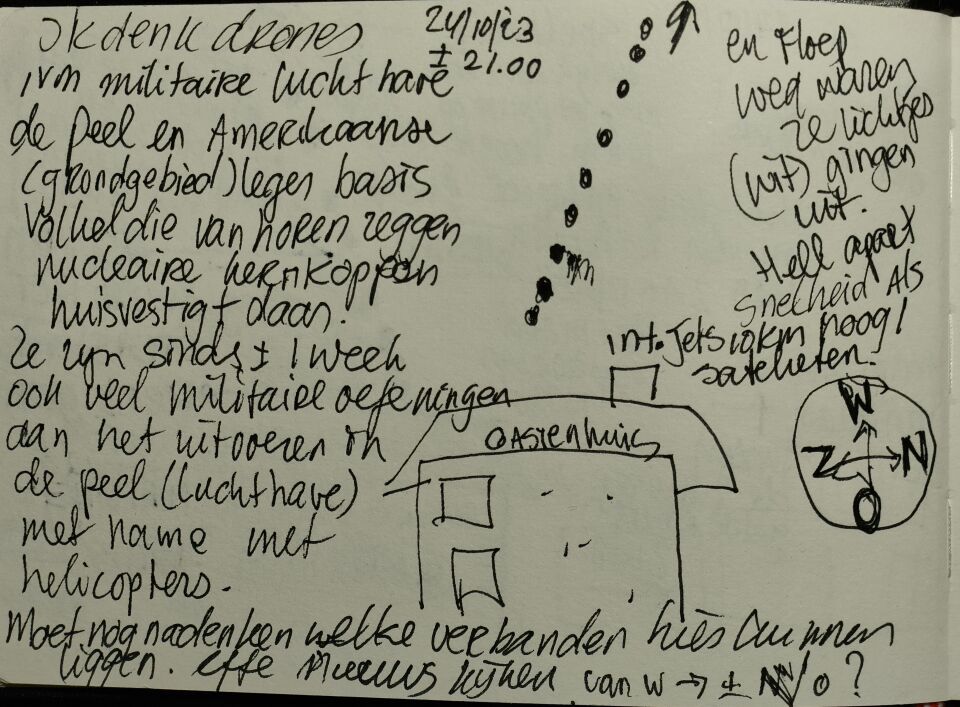 Ik denk drones
ivm militaire luchthave
de Peel en Amerikaanse
(grondgebied) leger basis
Volkel die van horen zeggen
nucleaire kernkoppen
huisvestigt daan!
Ze zijn sinds ± 1 week
ook veel militaire oefeningen
aan het uitvoeren in
de peel. (luchthave)
met name met
helicopters.
Moet nog nadenken welke verbanden hies kunnen
liggen. effe nieuws kijken van W → ± N/O?
24/10/23
± 21.00
en floep
weg waren
ze lichtjes
(wit) gingen
uit.
Hell apart
Snelheid Als
int. Jets 10km hoog /
satelieten.
Gastenhuis
W
Z N
O